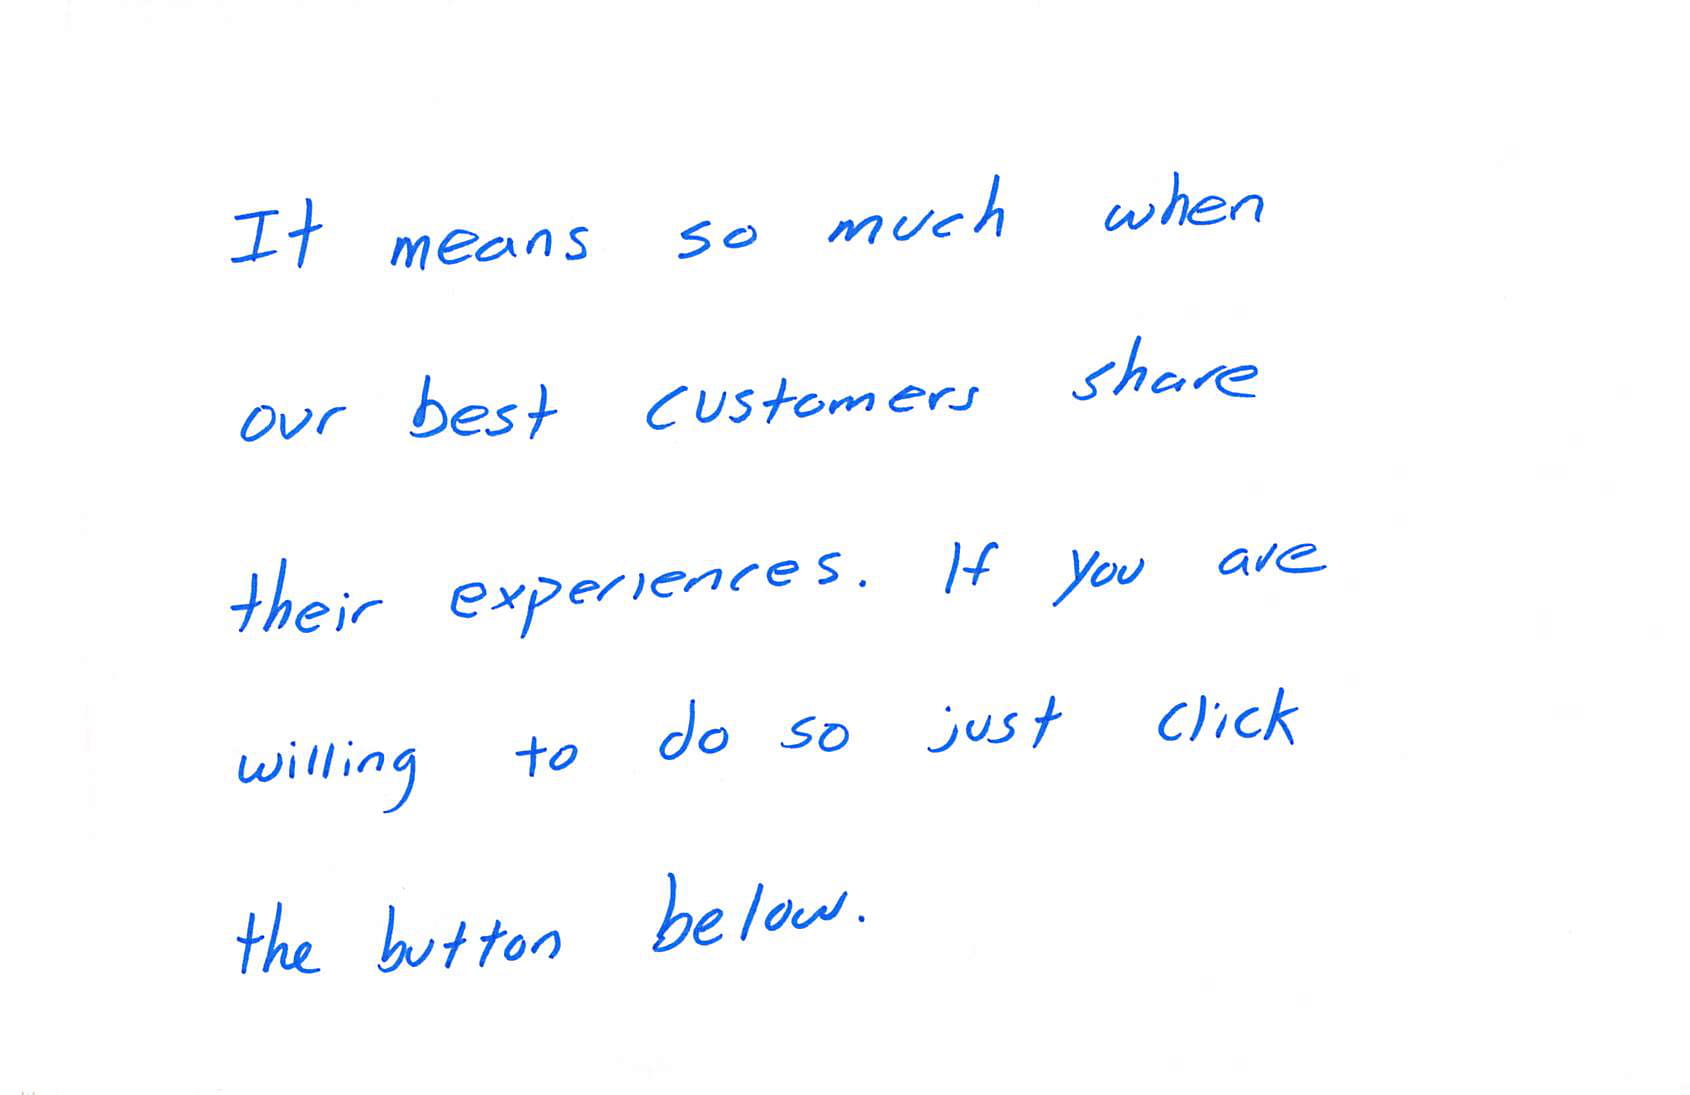 It means so much when
our best customers share
their experiences. If you are
willing to do so just click
the button below.